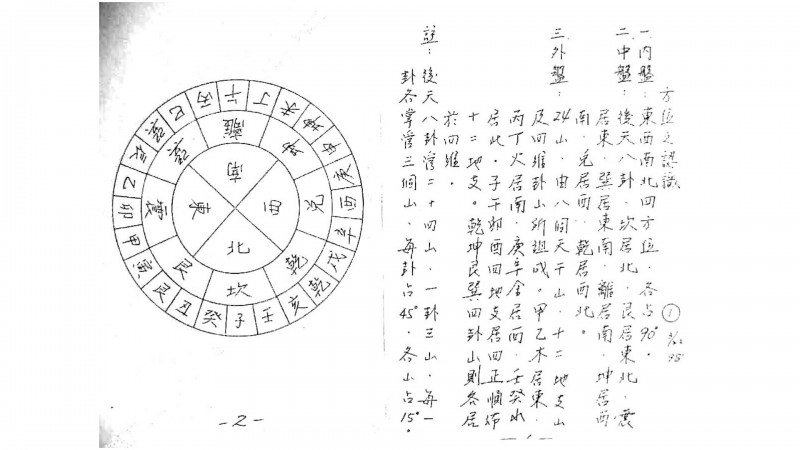 方位之認識
①
一.內盤:東西南北四方位.各占90°.
二.中盤:後天八卦.坎居北.艮居東北.震
居東.巽居東南.離居南.坤居西
南.兌居西.乾居西北。
三.外盤:24山.由八個天干山.十二地支山
及四維卦山所組成。甲乙木居東.
丙丁火居南.庚辛金居西.壬癸水
居北.子午卯酉四地支居四正順佈
十二地支。乾坤艮巽四卦山則各居
於四維.
註:後天八卦管二十四山.一卦三山.每一
卦各掌管三個山.每卦占45°.各山占15°
-1-
南
西
北
東
離
坤
兌
乾
坎
艮
震
巽
午
丁
未
坤
申
庚
酉
辛
戌
乾
亥
壬
子
癸
丑
艮
寅
甲
卯
乙
辰
巽
巳
丙
-2-